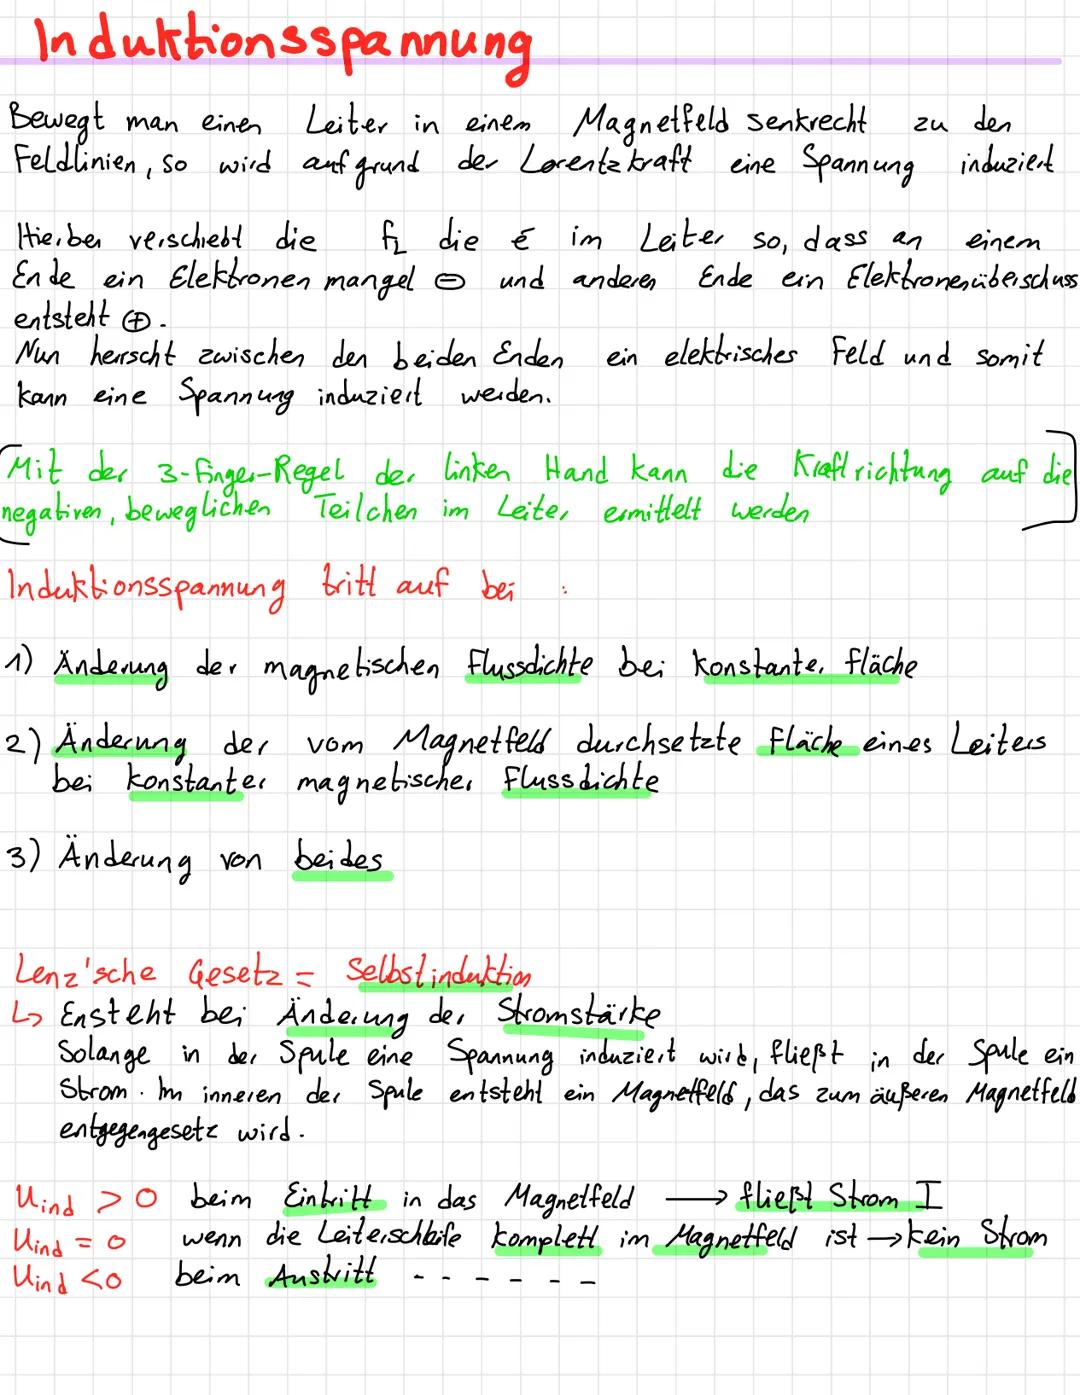 Induktionsspannung
Bewegt man einen Leiter in einem Magnetfeld senkrecht zu den
Feldlinien, so wird aufgrund der Lorentzkraft eine Spannung induziert
Hierbei verschiebt die F_L die e⁻ im Leiter so, dass an einem
Ende ein Elektronenmangel ⊖ und anderen Ende ein Elektronenüberschuss
entsteht ⊕.
Nun herrscht zwischen den beiden Enden ein elektrisches Feld und somit
kann eine Spannung induziert werden.
[Mit der 3-Finger-Regel der linken Hand kann die Kraftrichtung auf die
negativen, beweglichen Teilchen im Leiter ermittelt werden]
Induktionsspannung tritt auf bei :
1) Änderung der magnetischen Flussdichte bei konstanter Fläche
2) Änderung der vom Magnetfeld durchsetzte Fläche eines Leiters
bei konstanter magnetischer Flussdichte
3) Änderung von beides
Lenz'sche Gesetz = Selbstinduktion
↳ Ensteht bei Änderung der Stromstärke
Solange in der Spule eine Spannung induziert wird, fließt in der Spule ein
Strom. Im inneren der Spule entsteht ein Magnetfeld, das zum äußeren Magnetfeld
entgegengesetz wird.
U_ind > 0 beim Eintritt in das Magnetfeld → fließt Strom I
U_ind = 0 wenn die Leiterschleife komplett im Magnetfeld ist → kein Strom
U_ind < 0 beim Austritt - - - - - - -